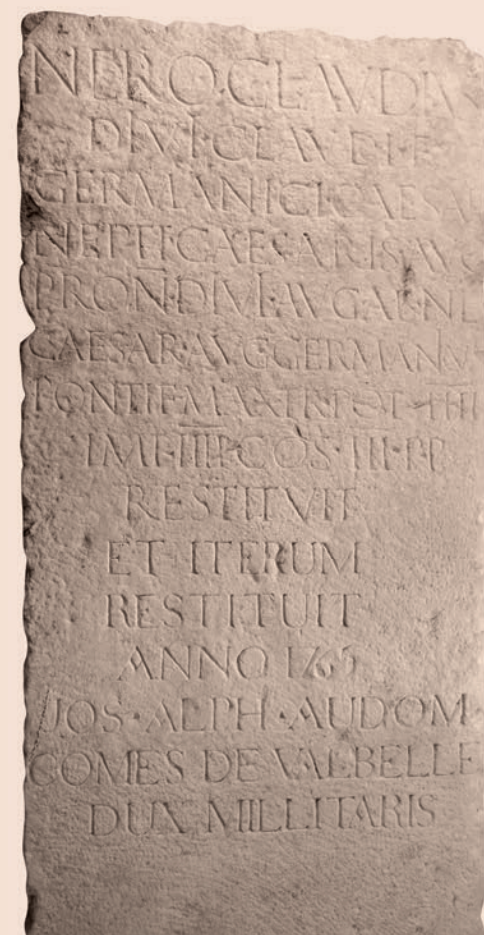 NERO·CLAVDIVS
DIVI·CLAVDI·F·
GERMANICI·CAESAR
NEP·TI·CAESARIS·AVG
PRON·DIVI·AVG·ABNE
CAESAR·AVG·GERMANVS
PONTIF·MAX·TR·POT·IIII
IMP·IIII·COS·III·P·P
RESTITVIT
ET·ITERUM
RESTITUIT
ANNO 1765
JOS·ALPH·AUDOM·
COMES DE VALBELLE
DUX MILLITARIS